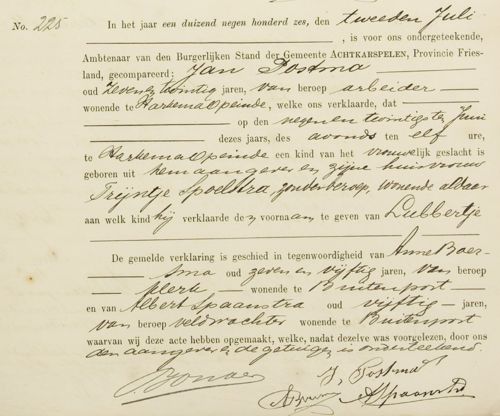 No. 225
In het jaar een duizend negen honderd zes, den tweeden Juli
, is voor ons ondergeteekende,
Ambtenaar van den Burgerlijken Stand der Gemeente ACHTKARSPELEN, Provincie Fries-
land, gecompareerd: Jan Postma
oud zevenentwintig jaren, van beroep arbeider
wonende te Harkema Opeinde, welke ons verklaarde, dat
op den negenentwintigsten Juni
dezes jaars, des avonds ten elf ure,
te Harkema Opeinde een kind van het vrouwelijk geslacht is
geboren uit hem aangever en zijne huisvrouw
Trijntje Spoelstra, zonder beroep, wonende aldaar
aan welk kind hij verklaarde den voornaam te geven van Lubbertje
De gemelde verklaring is geschied in tegenwoordigheid van Anne Boer-
sma oud zeven en vijftig jaren, van beroep
klerk wonende te Buitenpost
en van Albert Spaanstra oud vijftig jaren,
van beroep veldwachter wonende te Buitenpost
waarvan wij deze acte hebben opgemaakt, welke, nadat dezelve was voorgelezen, door ons
den aangever en de getuigen is onderteekend.
J. Postma
ASpaanstra